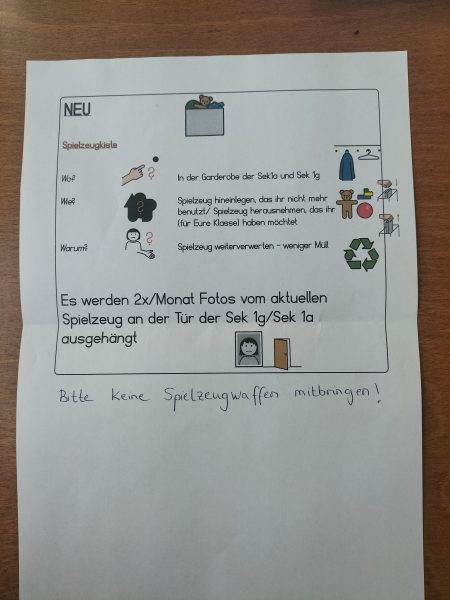 NEU
Spielzeugkiste
Wo?
In der Garderobe der Sek1a und Sek 1g
Wie?
Spielzeug hineinlegen, das ihr nicht mehr
benutzt/ Spielzeug herausnehmen, das ihr
(für Eure Klasse) haben möchtet
Warum?
Spielzeug weiterverwerten - weniger Müll
Es werden 2x/Monat Fotos vom aktuellen
Spielzeug an der Tür der Sek 1g/Sek 1a
ausgehängt
Bitte keine Spielzeugwaffen mitbringen!